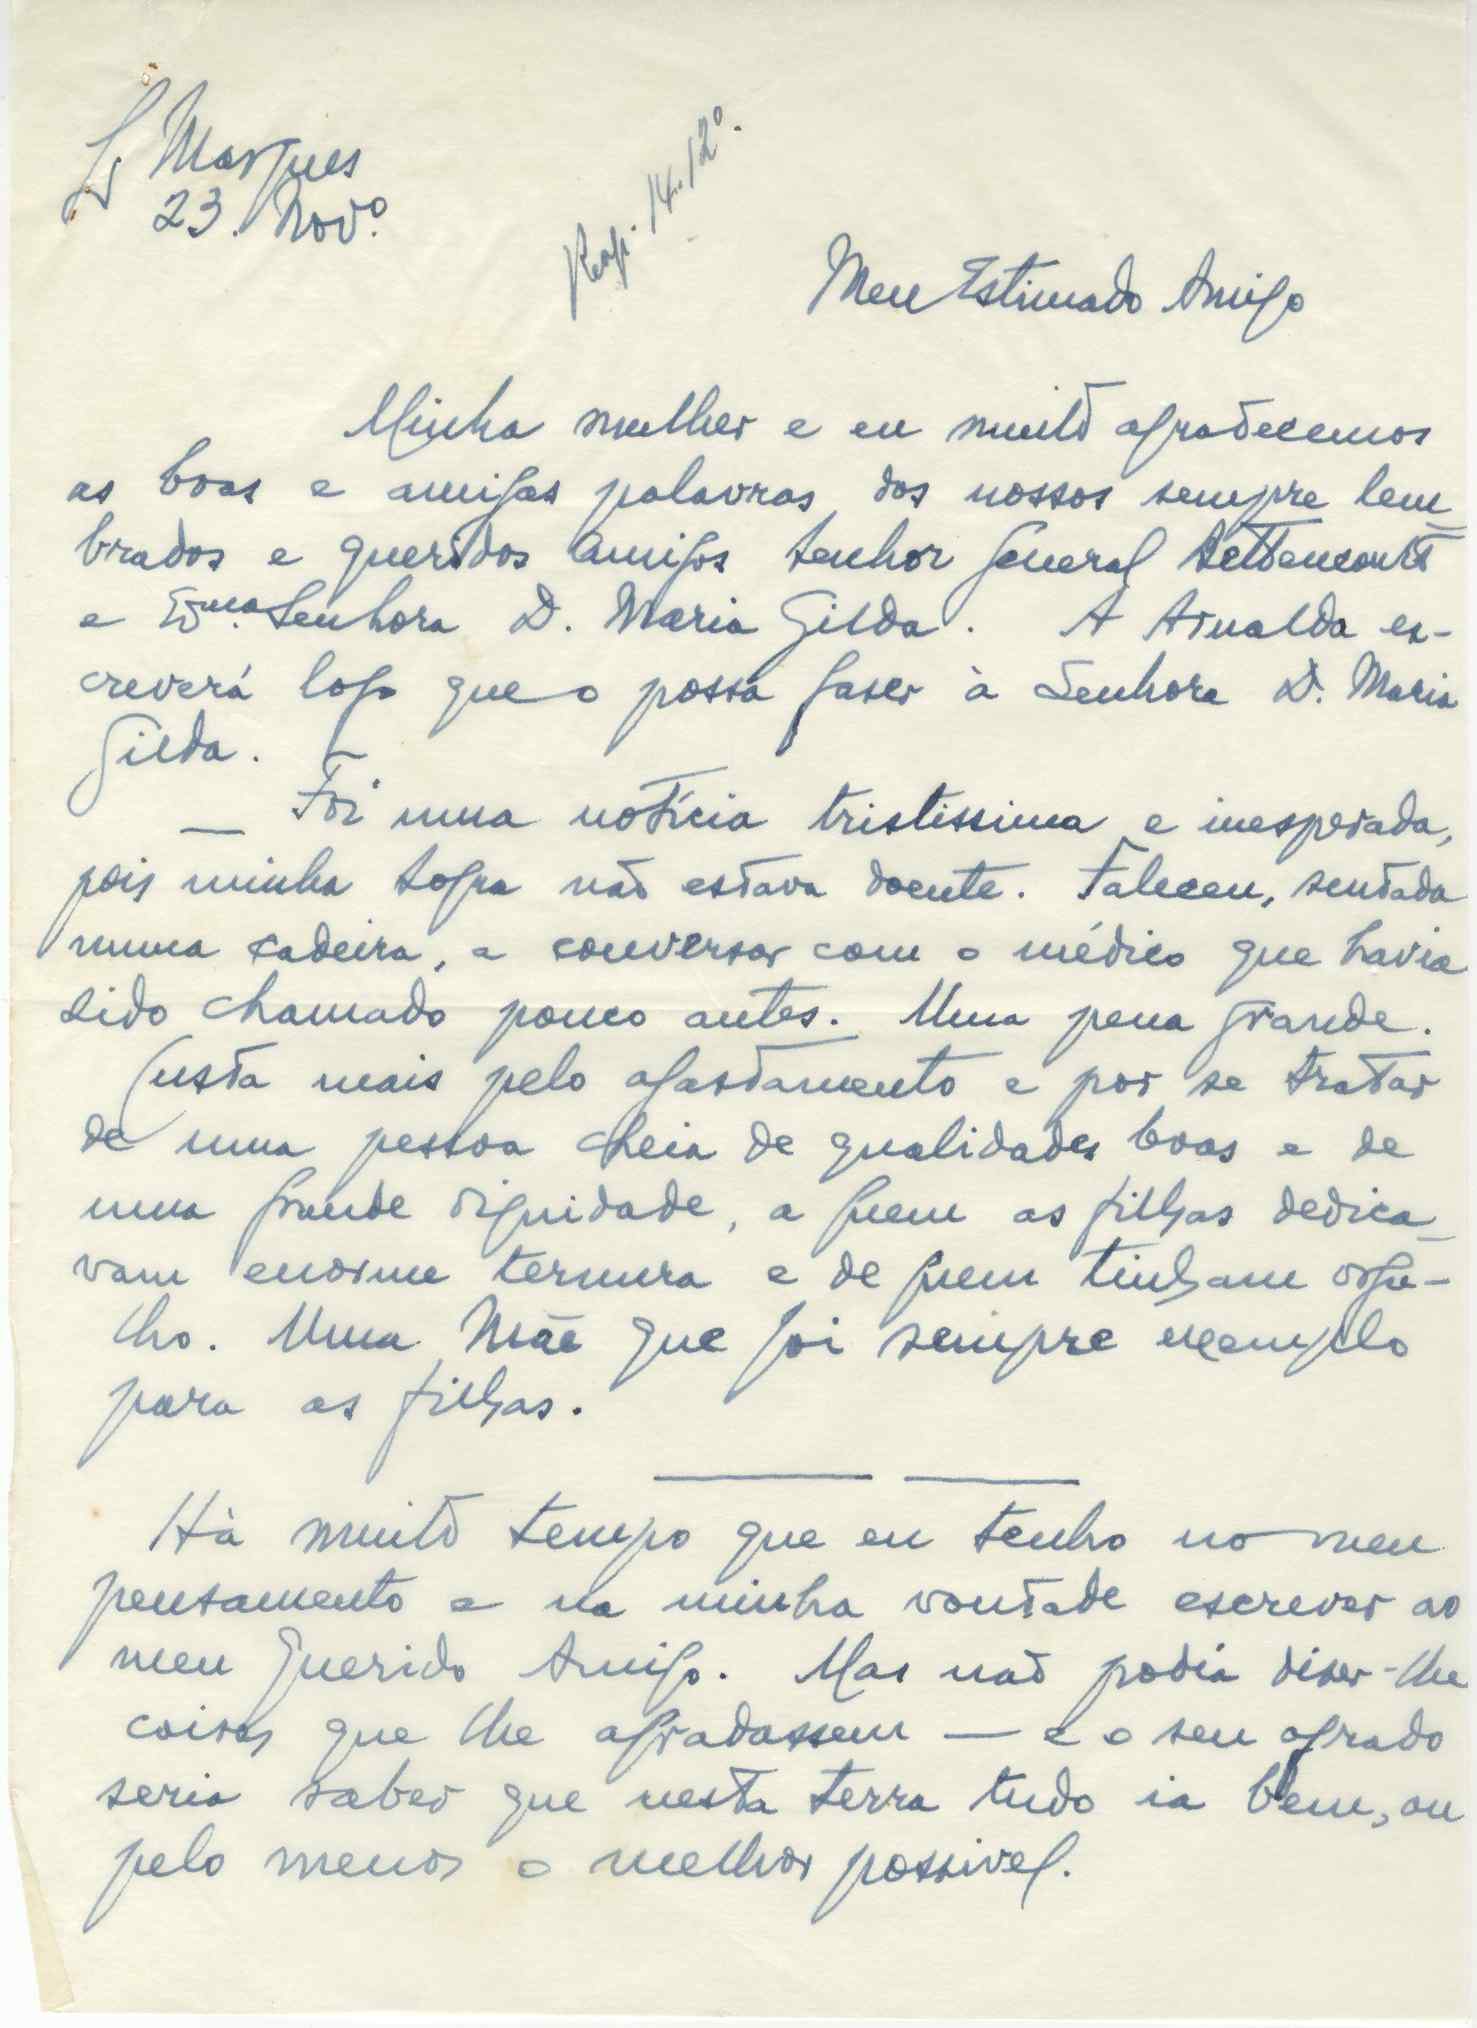 L Marques
23. Novº.
Resp. 14.12º.
Meu Estimado Amigo
Minha mulher e eu muito agradecemos
as boas e amigas palavras dos nossos sempre lem
brados e queridos amigos Senhor General Bettencourt
e Exma. Senhora D. Maria Gilda. A Arnalda es-
creverá logo que o possa faser à Senhora D. Maria
Gilda.
— Foi uma notícia tristissima e inesperada,
pois minha sogra não estava doente. Faleceu, sentada
numa cadeira, a conversar com o médico que havia
sido chamado pouco antes. Uma pena grande.
Custa mais pelo afastamento e por se tratar
de uma pessoa cheia de qualidades boas e de
uma grande dignidade, a quem as filhas dedica_
vam enorme ternura e de quem tinham orgu-
lho. Uma Mãe que foi sempre exemplo
para as filhas.
Há muito tempo que eu tenho no meu
pensamento e na minha vontade escrever ao
meu Querido Amigo. Mas não podia diser-lhe
coisas que lhe agradassem — e o seu agrado
seria saber que nesta terra tudo ia bem, ou
pelo menos o melhor possivel.